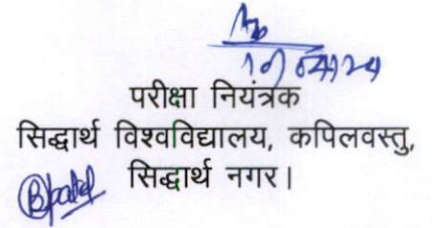 परीक्षा नियंत्रक
सिद्धार्थ विश्वविद्यालय, कपिलवस्तु,
सिद्धार्थ नगर।